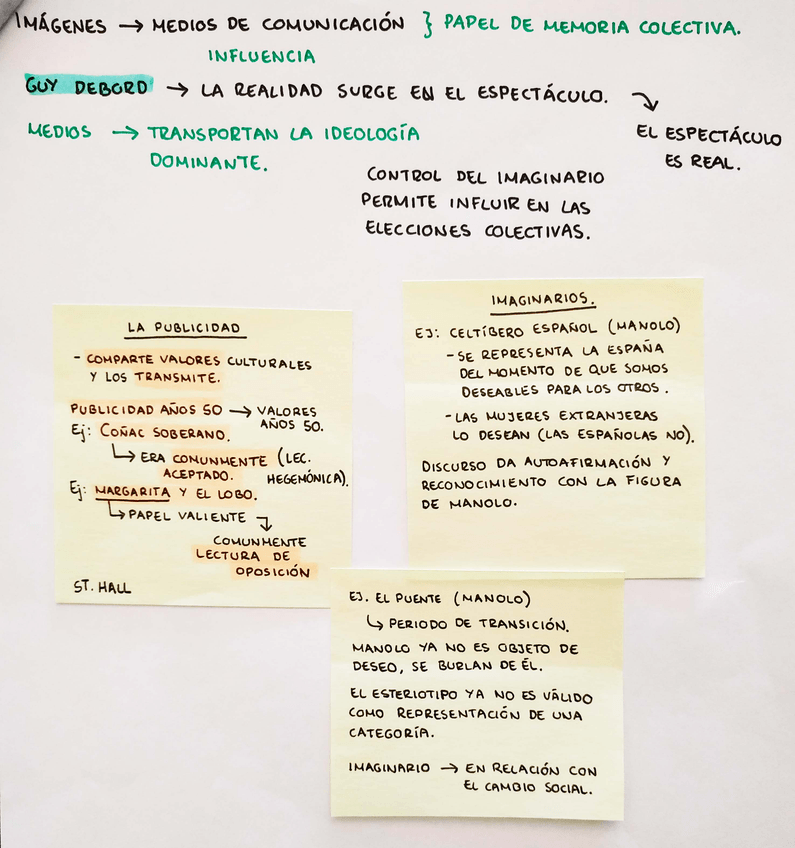 IMÁGENES → MEDIOS DE COMUNICACIÓN } PAPEL DE MEMORIA COLECTIVA.
INFLUENCIA
GUY DEBORD → LA REALIDAD SURGE EN EL ESPECTÁCULO.
EL ESPECTÁCULO
ES REAL.
MEDIOS → TRANSPORTAN LA IDEOLOGÍA
DOMINANTE.
CONTROL DEL IMAGINARIO
PERMITE INFLUIR EN LAS
ELECCIONES COLECTIVAS.
LA PUBLICIDAD
- COMPARTE VALORES CULTURALES
Y LOS TRANSMITE.
PUBLICIDAD AÑOS 50 → VALORES
AÑOS 50.
Ej: COÑAC SOBERANO.
↳ ERA COMUNMENTE (LEC.
ACEPTADO. HEGEMÓNICA).
Ej: MARGARITA Y EL LOBO.
↳ PAPEL VALIENTE
COMUNMENTE
LECTURA DE
OPOSICIÓN
ST. HALL
IMAGINARIOS.
EJ: CELTÍBERO ESPAÑOL (MANOLO)
- SE REPRESENTA LA ESPAÑA
DEL MOMENTO DE QUE SOMOS
DESEABLES PARA LOS OTROS.
- LAS MUJERES EXTRANJERAS
LO DESEAN (LAS ESPAÑOLAS NO).
DISCURSO DA AUTOAFIRMACIÓN Y
RECONOCIMIENTO CON LA FIGURA
DE MANOLO.
EJ. EL PUENTE (MANOLO)
↳ PERIODO DE TRANSICIÓN.
MANOLO YA NO ES OBJETO DE
DESEO, SE BURLAN DE ÉL.
EL ESTERIOTIPO YA NO ES VÁLIDO
COMO REPRESENTACIÓN DE UNA
CATEGORÍA.
IMAGINARIO → EN RELACIÓN CON
EL CAMBIO SOCIAL.